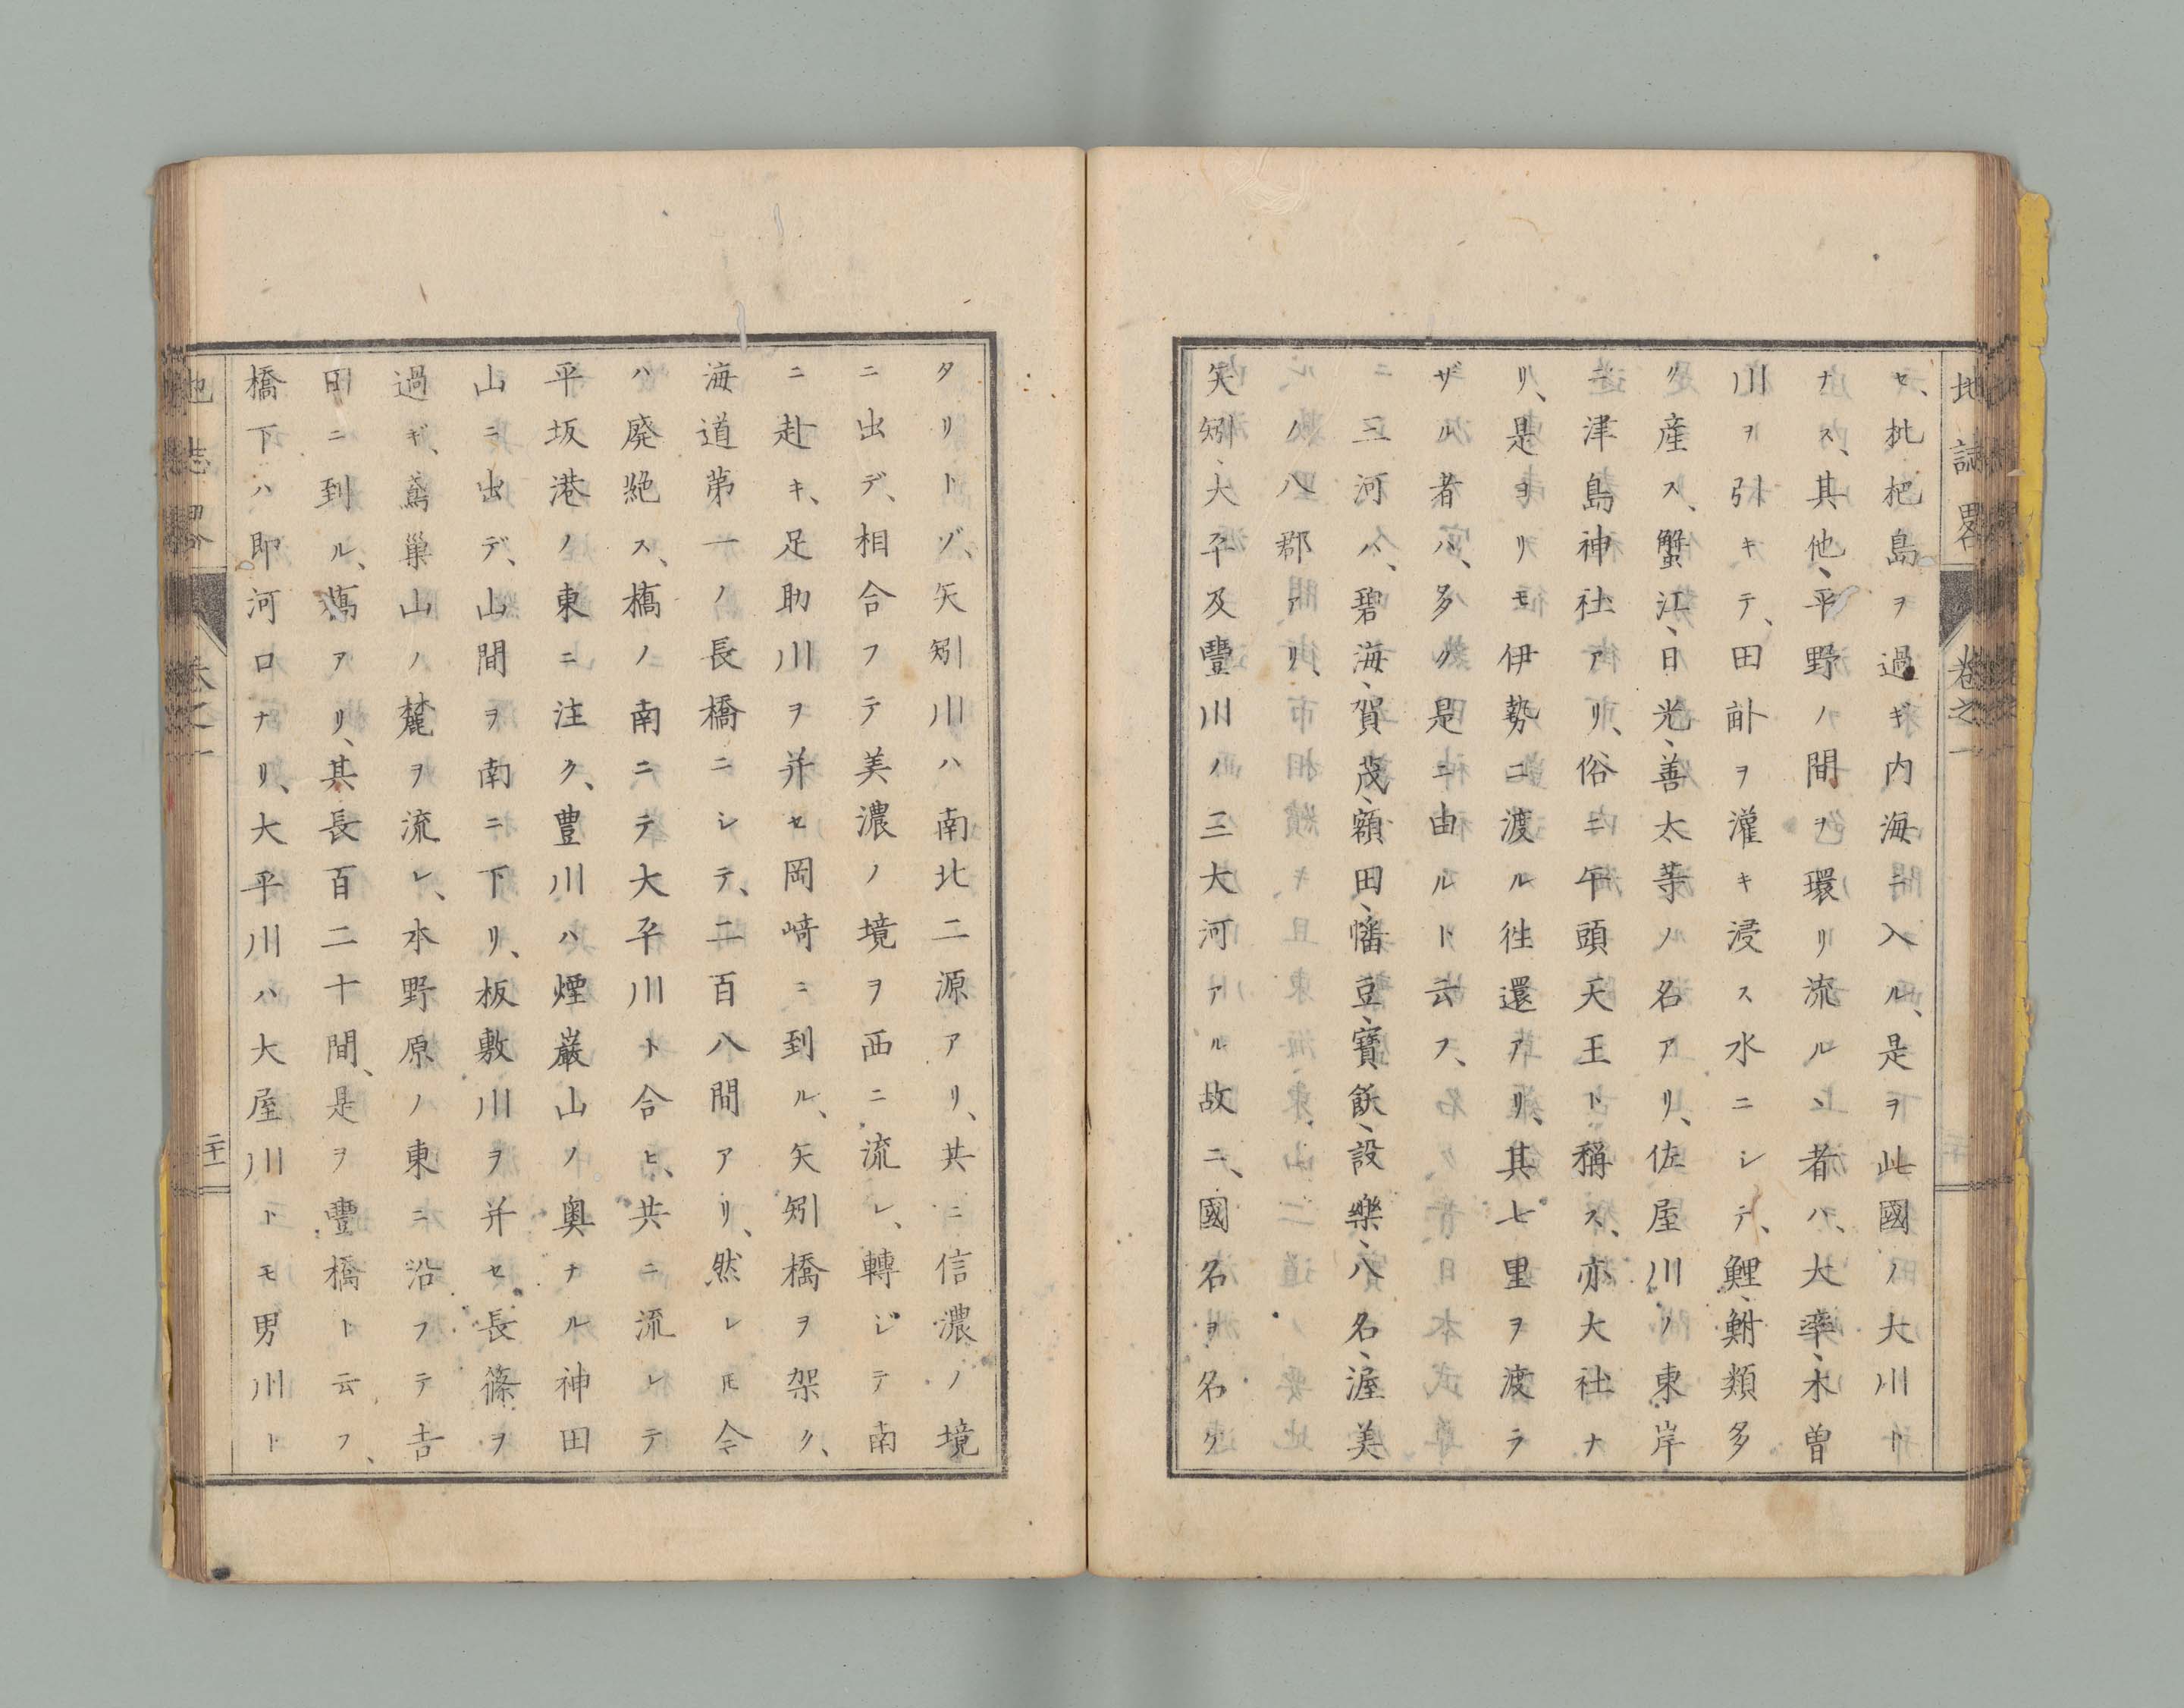 地誌畧 卷之一
セ、枇杷島ヲ過ギ内海ニ入ル、是ヲ此國ノ大川ト
ナス、其他、平野ノ間ヲ環リ流ルヽ者ハ、大率、木曽
川ヲ引キテ、田畝ヲ灌キ浸ス水ニシテ、鯉、鮒類多
ク産ス、蟹江、日光、善太等ノ名アリ、佐屋川ノ東岸
ニ津島神社アリ、俗ニ牛頭天王ト稱ス、亦大社ナ
リ、是ヨリモ伊勢ニ渡ル徃還アリ、其七里ヲ渡ラ
ザル者ハ、多ク是ニ由ルト云フ、
三河ハ、碧海、賀茂、額田、幡豆、寶飫、設樂、八名、渥美
ノ八郡アリ、
矢矧、大平及豐川ノ三大河アル故ニ、國名ヲ名ク
タリトゾ、矢矧川ハ南北二源アリ、共ニ信濃ノ境
ニ出デ、相合フテ美濃ノ境ヲ西ニ流レ、轉ジテ南
ニ赴キ、足助川ヲ并セ岡﨑ニ到ル、矢矧橋ヲ架ク、
海道第一ノ長橋ニシテ、二百八間アリ、然レ𪜈今
ハ廢絶ス、橋ノ南ニテ大平川ト合ヒ、共ニ流レテ
平坂港ノ東ニ注ク、豊川ハ煙巖山ノ奥ナル神田
山ニ出デ、山間ヲ南ニ下リ、板敷川ヲ并セ長篠ヲ
過ギ、鳶巢山ノ麓ヲ流レ、本野原ノ東ニ沿フテ吉
田ニ到ル、橋アリ、其長百二十間、是ヲ豐橋ト云フ、
橋下ハ即河口ナリ、大平川ハ大屋川トモ男川ト
地誌畧 卷之一 二十一